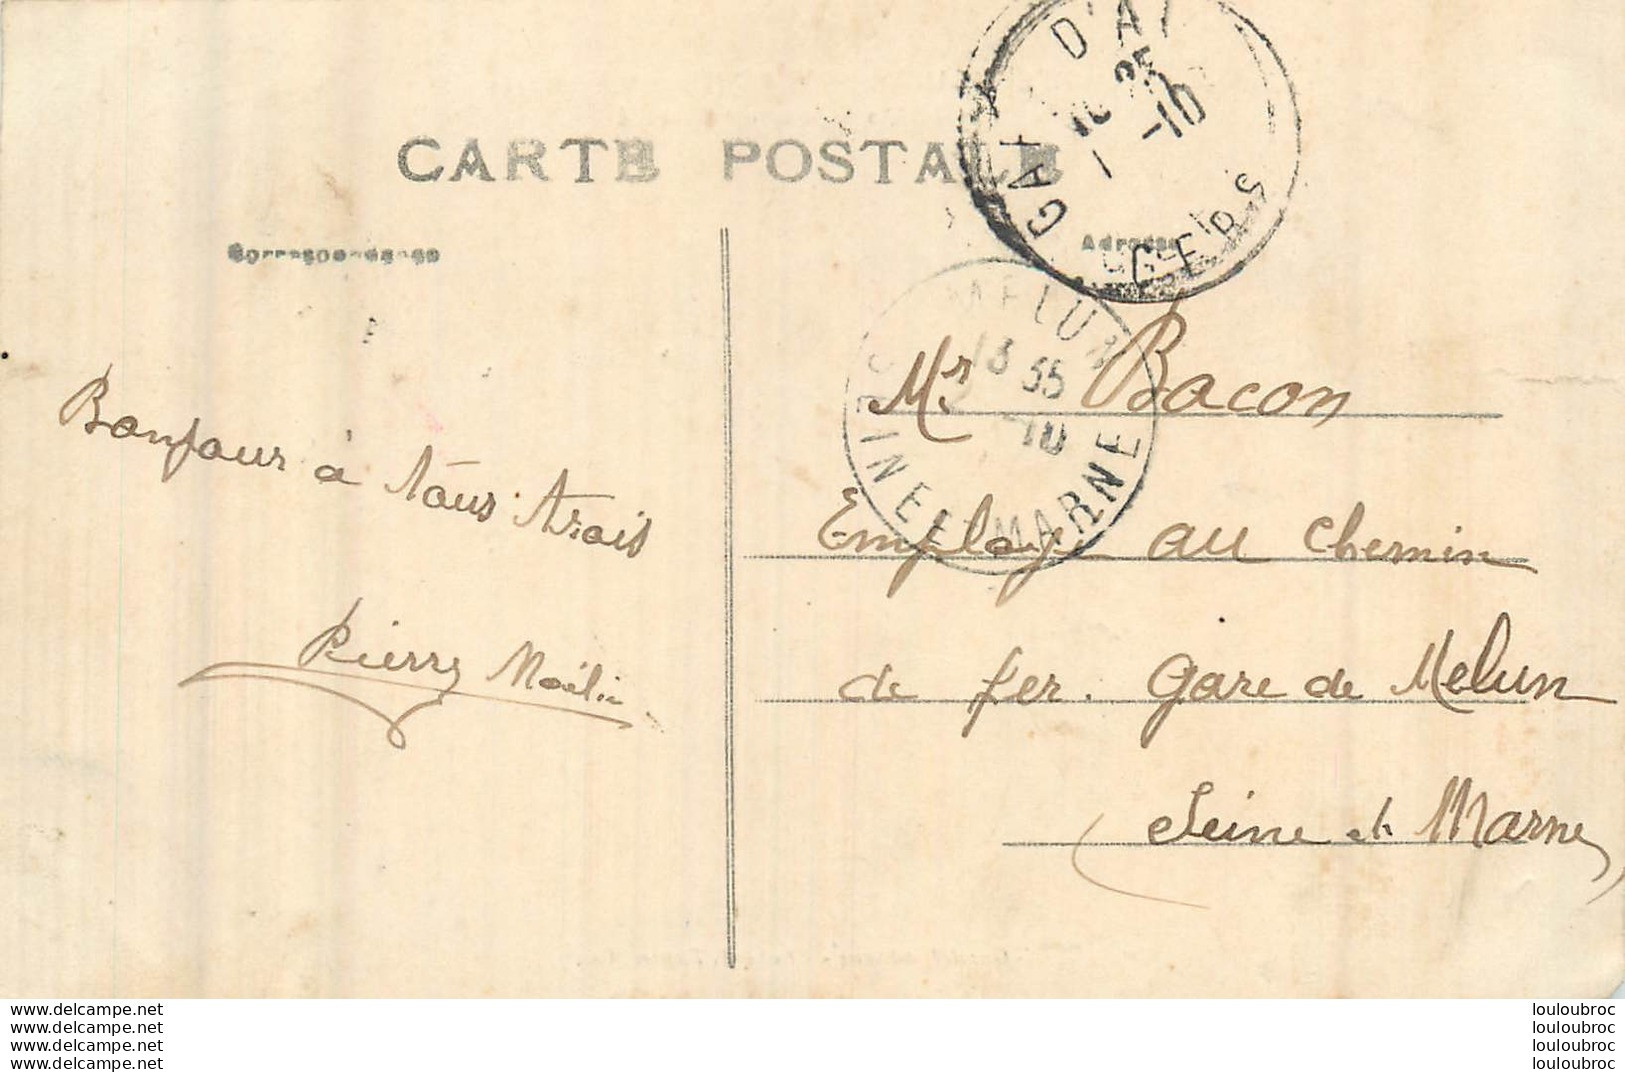 CARTE POSTALE
Correspondance
Adresse
D'A
10 25
-10
GERS
MELUN
13 35
-10
SEINE ET MARNE
Bonjour à tous trois
Pierre
Mr Bacon
Employé au Chemin
de fer. Gare de Melun
Seine et Marne
louloubroc
louloubroc
louloubroc
louloubroc
www.delcampe.net
www.delcampe.net
www.delcampe.net
www.delcampe.net